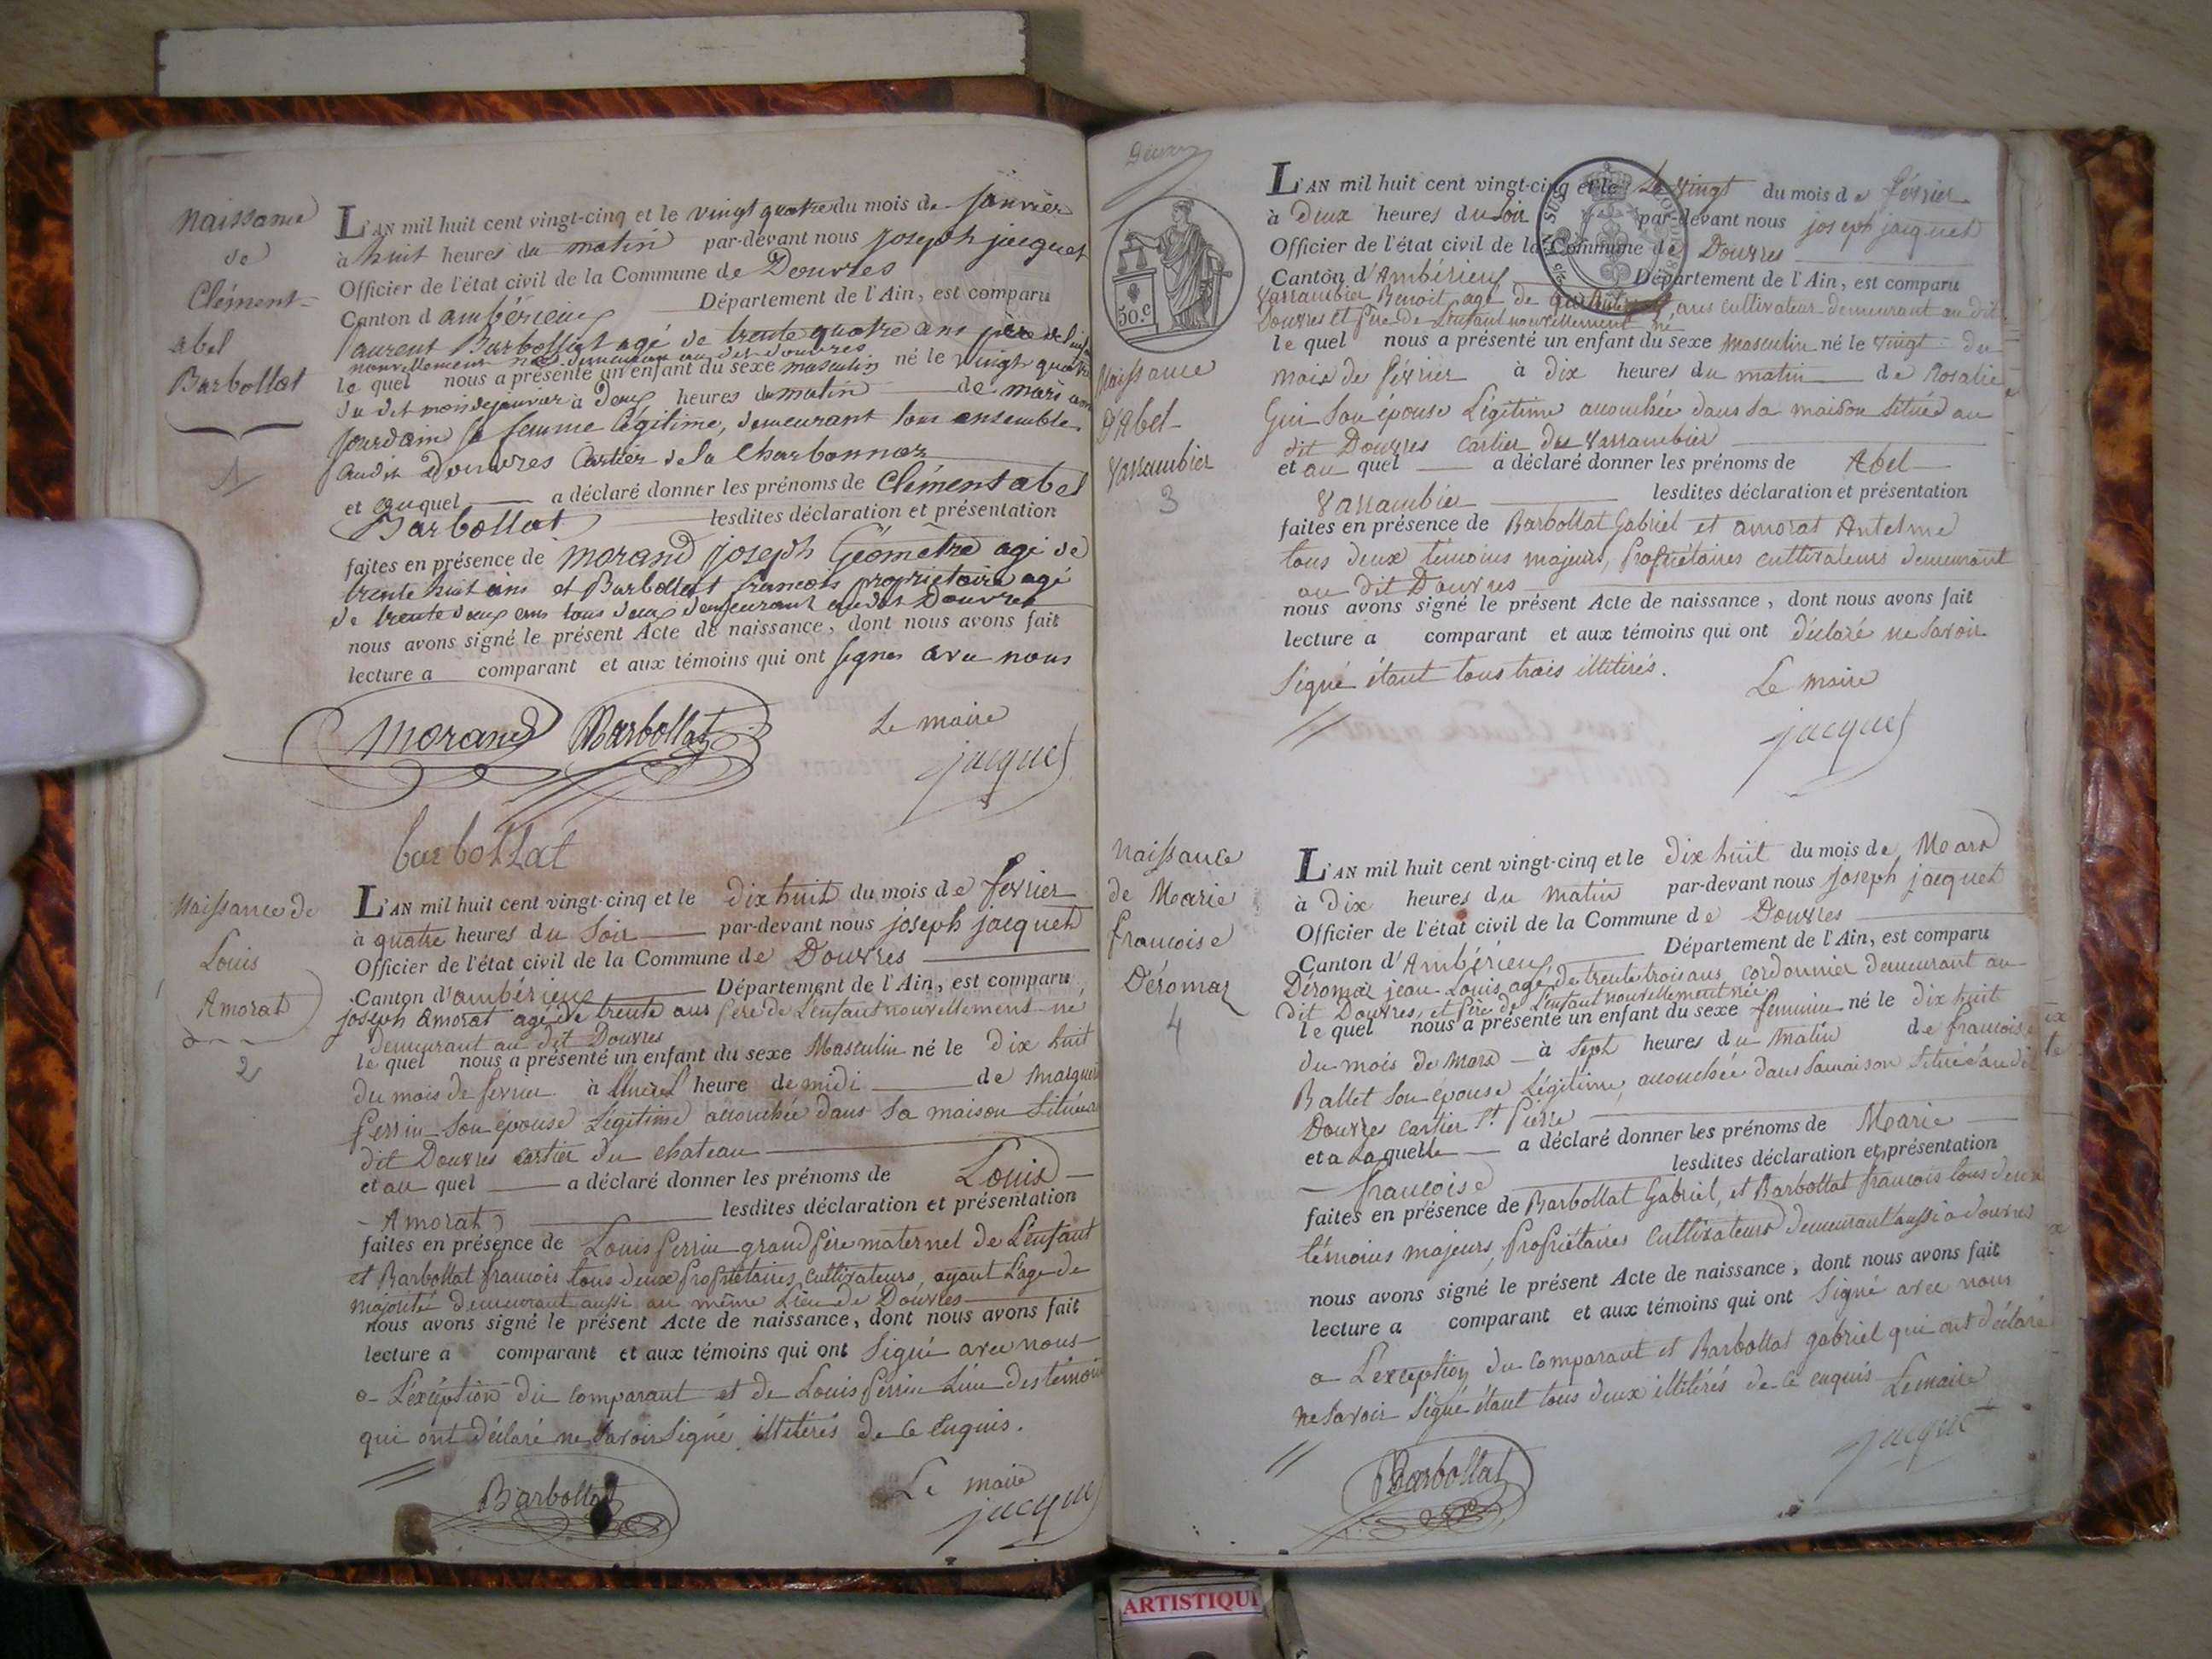 Naissance
de
Clément-
abel
Barbollat
1
L'AN mil huit cent vingt-cinq et le vingt quatre du mois de Janvier
à huit heures du matin par-devant nous Joseph jacquet
Officier de l'état civil de la Commune de Douvres
Canton d'ambérieux Département de l'Ain, est comparu
laurent Barbollat agé de trente quatre ans père de l'enfant
nouvellement né demeurant au dit douvres
le quel nous a présenté un enfant du sexe masculin né le vingt quatre
du dit mois de janvier à deux heures du matin de marianne
jourdain sa femme légitime, demeurant tous ensemble
audit Douvres Cartier de la Charbonnaz
et auquel a déclaré donner les prénoms de Clément abel
Barbollat lesdites déclaration et présentation
faites en présence de Morand joseph Géomètre agé de
trente huit ans et Barbollat francois propriétaire agé
de trente deux ans tous deux demeurant audit Douvres
nous avons signé le présent Acte de naissance, dont nous avons fait
lecture a comparant et aux témoins qui ont signés avec nous
Morand Barbollat
Le maire
jacquet
barbollat
Naissance de
Louis
Amorat
2
L'AN mil huit cent vingt-cinq et le dix huit du mois de février
à quatre heures du Soir par-devant nous joseph jacquet
Officier de l'état civil de la Commune de Douvres
Canton d'ambérieux Département de l'Ain, est comparu,
joseph amorat agé de trente ans père de L'enfant nouvellement né
demeurant au dit Douvres
le quel nous a présenté un enfant du sexe Masculin né le dix huit
du mois de fevrier à heure de midi de
perrin son épouse Légitime accouchée dans sa maison située au
dit Douvres cartier du chateau
et au quel a déclaré donner les prénoms de Louis
Amorat lesdites déclaration et présentation
faites en présence de Louis perrin grand père maternel de L'enfant
et Barbollat francois tous deux propriétaires cultivateurs, ayant L'age de
majorité demeurant aussi au même Lieu de Douvres
nous avons signé le présent Acte de naissance, dont nous avons fait
lecture a comparant et aux témoins qui ont Signé avec nous
a L'exception du comparant et de Louis perrin L'un des témoins
qui ont déclaré ne savoir Signé illitérés de ce Enquis.
Barbollat
Le maire
jacquet
30 c
Naissance
D'Abel
Varrambier
3
L'AN mil huit cent vingt-cinq et le Le vingt du mois de février
à Deux heures du Soir par-devant nous joseph jacquet
Officier de l'état civil de la Commune de Douvres
Canton d'Ambérieux Département de l'Ain, est comparu
Varrambier Benoit agé de ans cultivateur demeurant au dit
Douvres et père de L'enfant nouvellement né
le quel nous a présenté un enfant du sexe Masculin né le vingt du
mois de février à dix heures du matin de Rosalie
Gui Son épouse Légitime accouchée dans sa maison Située au
dit Douvres cartier du Varrambier
et au quel a déclaré donner les prénoms de Abel
Varrambier lesdites déclaration et présentation
faites en présence de Barbollat Gabriel et amorat Antelme
tous deux témoins majeurs, propriétaires cultivateurs demeurant
au dit Douvres
nous avons signé le présent Acte de naissance, dont nous avons fait
lecture a comparant et aux témoins qui ont déclaré ne savoir
Signé étant tous trois illitérés.
Le maire
jacquet
Naissance
de Marie
francoise
Déromaz
4
L'AN mil huit cent vingt-cinq et le Dix huit du mois de Mars
à Dix heures du Matin par-devant nous Joseph jacquet
Officier de l'état civil de la Commune de Douvres
Canton d'Ambérieux Département de l'Ain, est comparu
Déromaz jean Louis agé de trente trois ans cordonnier demeurant au
dit Douvres, et père de L'enfant nouvellement née
le quel nous a présenté un enfant du sexe féminin né le dix huit
du mois de Mars à Sept heures du Matin de francoise
Ballet Son épouse Légitime, accouchée dans Sa maison Située au dit
Douvres cartier St. Pierre
et a Laquelle a déclaré donner les prénoms de Marie
francoise lesdites déclaration et présentation
faites en présence de Barbollat Gabriel, et Barbollat francois tous deux
témoins majeurs, propriétaires Cultivateurs demeurant aussi a douvres
nous avons signé le présent Acte de naissance, dont nous avons fait
lecture a comparant et aux témoins qui ont Signé avec nous
a L'exception du Comparant et Barbollat gabriel qui ont déclaré
ne savoir Signé étant tous deux illitérés de ce enquis Le maire
Barbollat
jacquet
ARTISTIQU